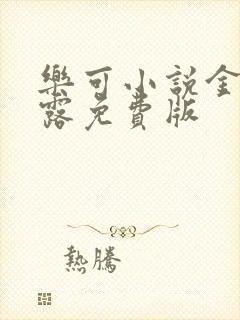 樂可小說金
露免費版
熱騰